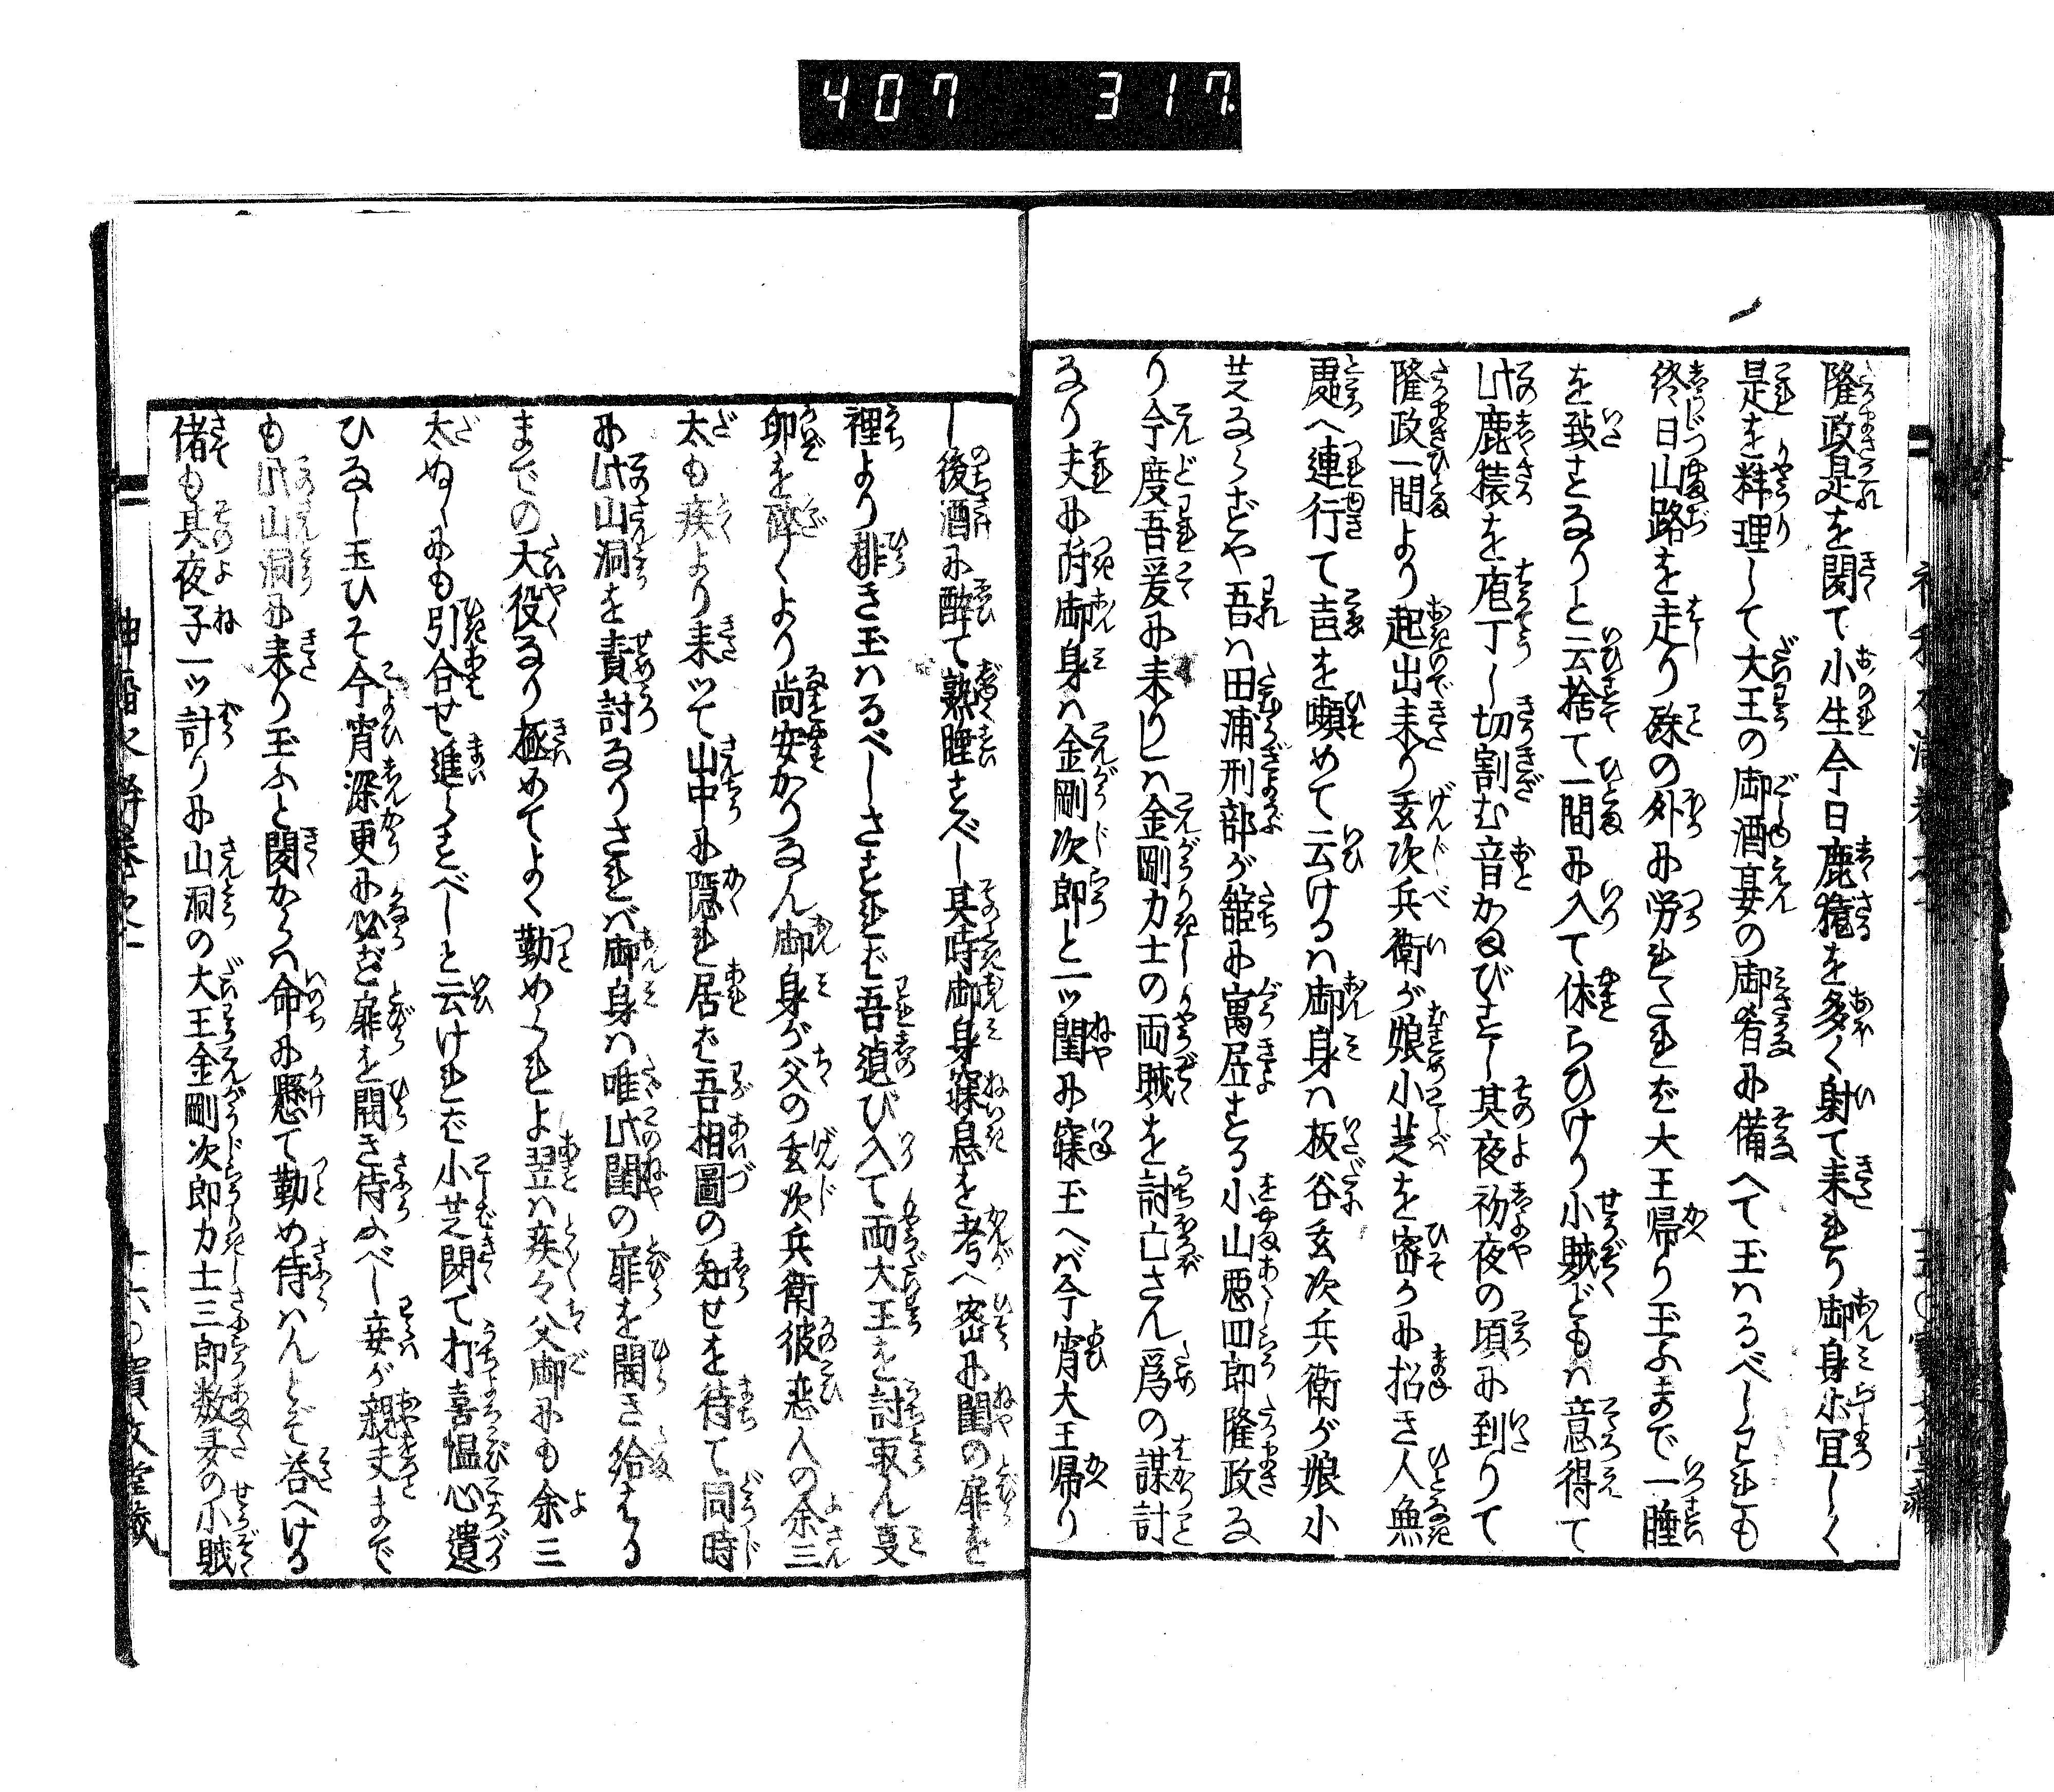 407 317.
隆政是を聞て小生今日鹿猿を多く射て来れり御身等宜しく
是を料理して大王の御酒宴の御肴に備へて玉はるべしこれも
終日山路を走り殊の外に労れたれば大王帰り玉ふまで一睡
を致さるなりと云捨て一間に入て休らひけり小賊どもは意得て
此鹿猿を庖丁し切割む音かまびすし其夜初夜の頃に到りて
隆政一間より起出来り玄次兵衛が娘小芝を密かに招き人無
処へ連行て言を嚬めて云けるは御身は板谷玄次兵衛が娘小
芝ならずや吾は田浦刑部が舘に寓居する小山悪四郎隆政な
り今度吾爰に来りしは金剛力士の両賊を討亡さん為の謀計
なり夫に付御身は金剛次郎と一ツ閨に寐玉へば今宵大王帰り
し後酒に酔て熟睡すべし其時御身寐息を考へ密に閨の扉を
裡より排き玉はるべしさすれば吾這び入て両大王を討取ん事
卵を砕くより尚安かりなん御身が父の玄次兵衛彼恋人の余三
太も疾より来ッて山中に隠れ居ば吾相圖の知せを待て同時
に此山洞を責討なりされば御身は唯此閨の扉を開き給はる
までの大役なり極めてよく勤めくれよ翌は疾々父御にも余三
太ぬしにも引合せ進らすべしと云ければ小芝聞て打喜愠心遣
ひなし玉ひそ今宵深更に必ず扉を開き侍ふべし妾が親夫まで
も此山洞に来り玉ふと聞からは命に懸て勤め侍はんとぞ答へける
偖も其夜子一ッ計りに山洞の大王金剛次郎力士三郎数多の小賊